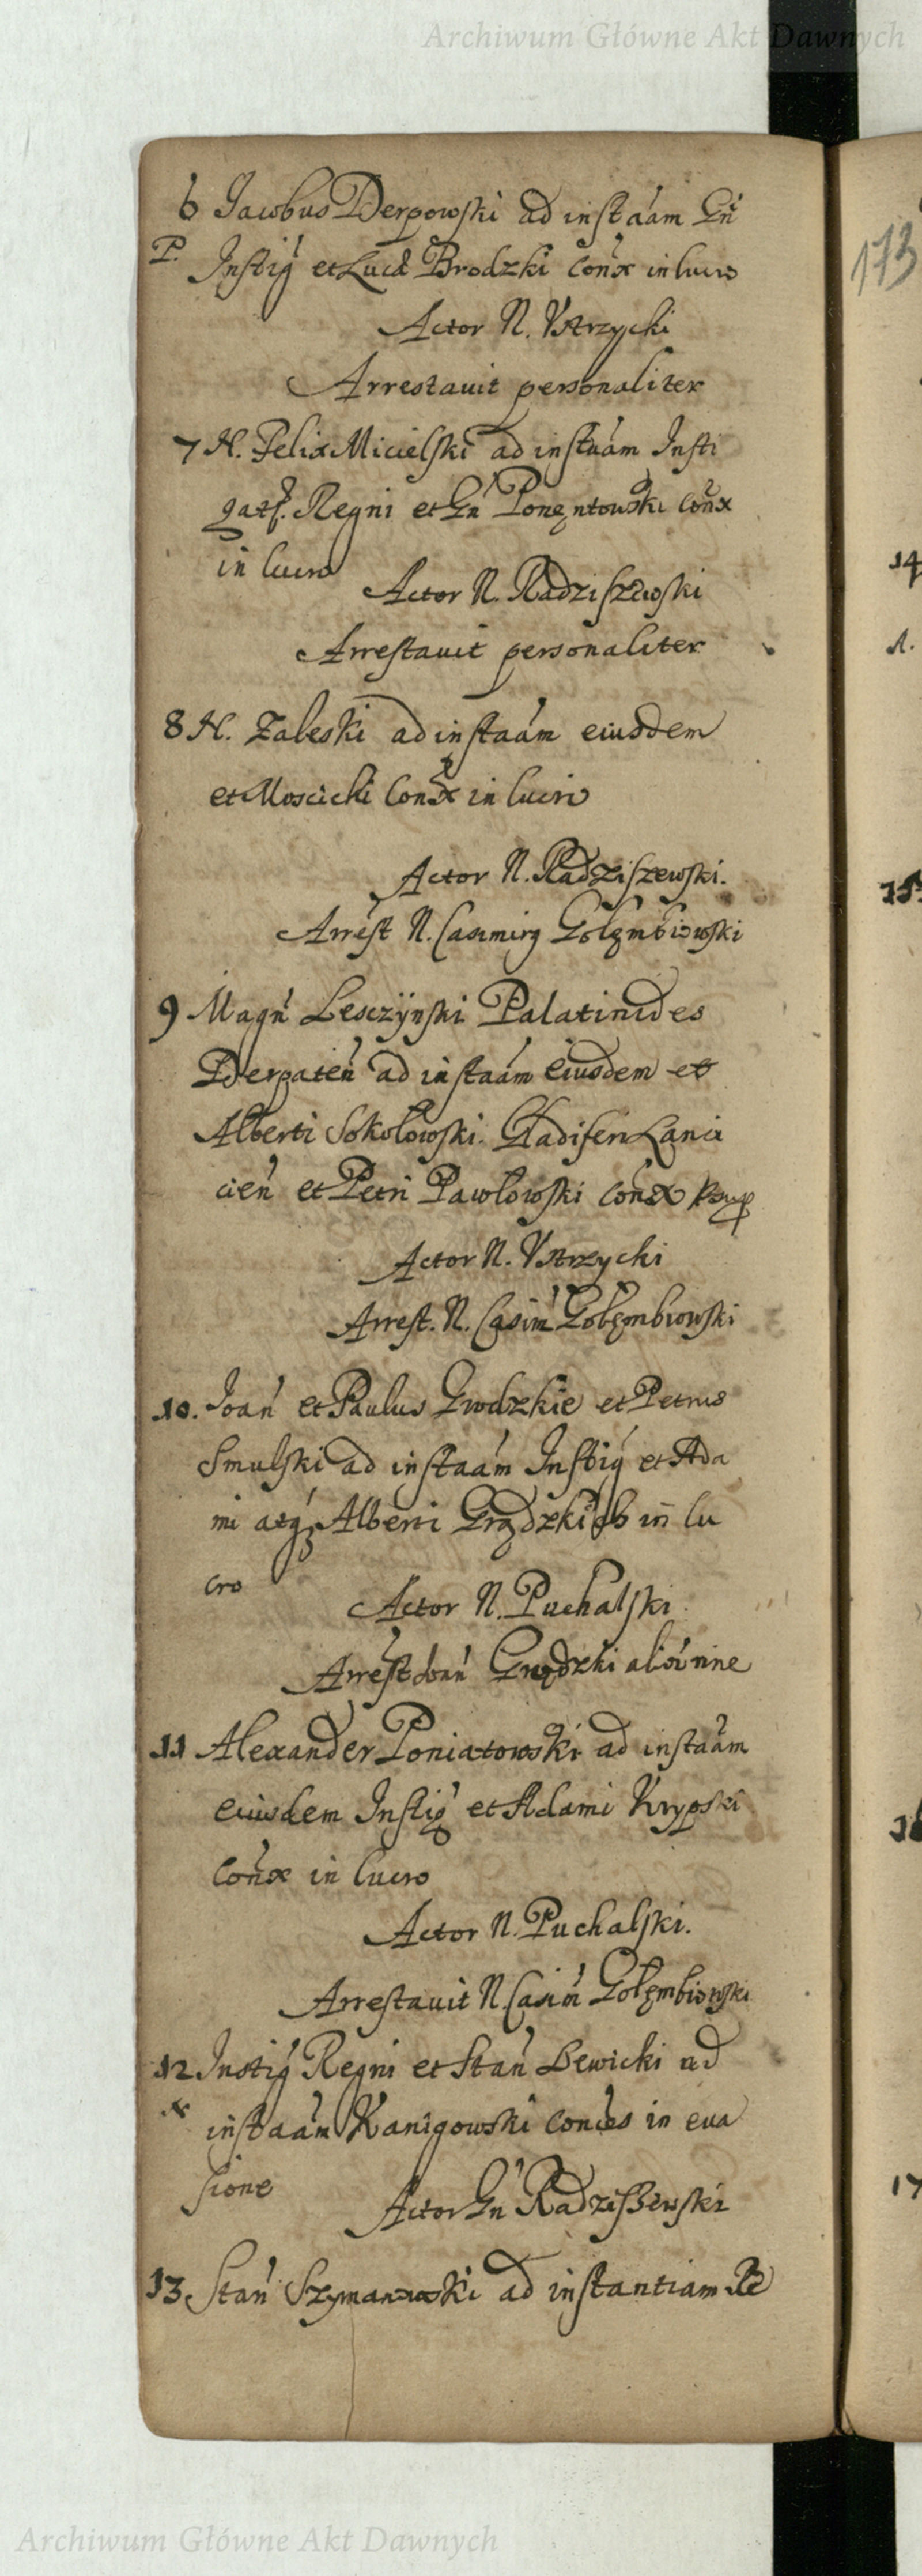 Archiwum Główne Akt Dawnych
6 Iacobus Derpowski ad instáam Gń
P. Instig' et Lucæ Brodzki Conx in lucro
173
Actor N. Vstrzycki
Arrestauit personaliter
7 N. Felix Micielski ad instaám Insti
gat. Regni et Gń Ponęntowski Conx
in lucro
Actor N. Radziszewski
Arrestauit personaliter
8 N. Zaleski ad instaám eiusdem
et Moscicki Conx in lucro
Actor N. Radziszewski.
Arrest N. Casimirg Gołęmbiowski
9 Magń Lesczÿnski Palatinides
Derpateń ad instaám eiusdem et
Alberti Sokołowski Gladifer Lanci
cień et Petri Pawłowski Conx
Actor N. Vstrzycki
Arrest. N. Casiḿ Gołęmbiowski
10. Ioań et Paulus Grodzkie et Petrus
Smulski ad instaám Instig' et Ada
mi atq; Alberti Grodzkich in lu
cro
Actor N. Puchalski
Arrest Ioań Grodzki nine
11 Alexander Poniatowski ad instaám
eiusdem Instig' et Adami Krypski
Conx in lucro
Actor N. Puchalski.
Arrestauit N. Casiḿ Gołęmbiowski
12 Instig' Regni et Stań Lewicki ad
x instaám Kanigowski Conces in eua
sione
Actor Gń Radziszewski
13. Stań Szymanowski ad instantiam Re
14
1.
15.
16
17
Archiwum Główne Akt Dawnych